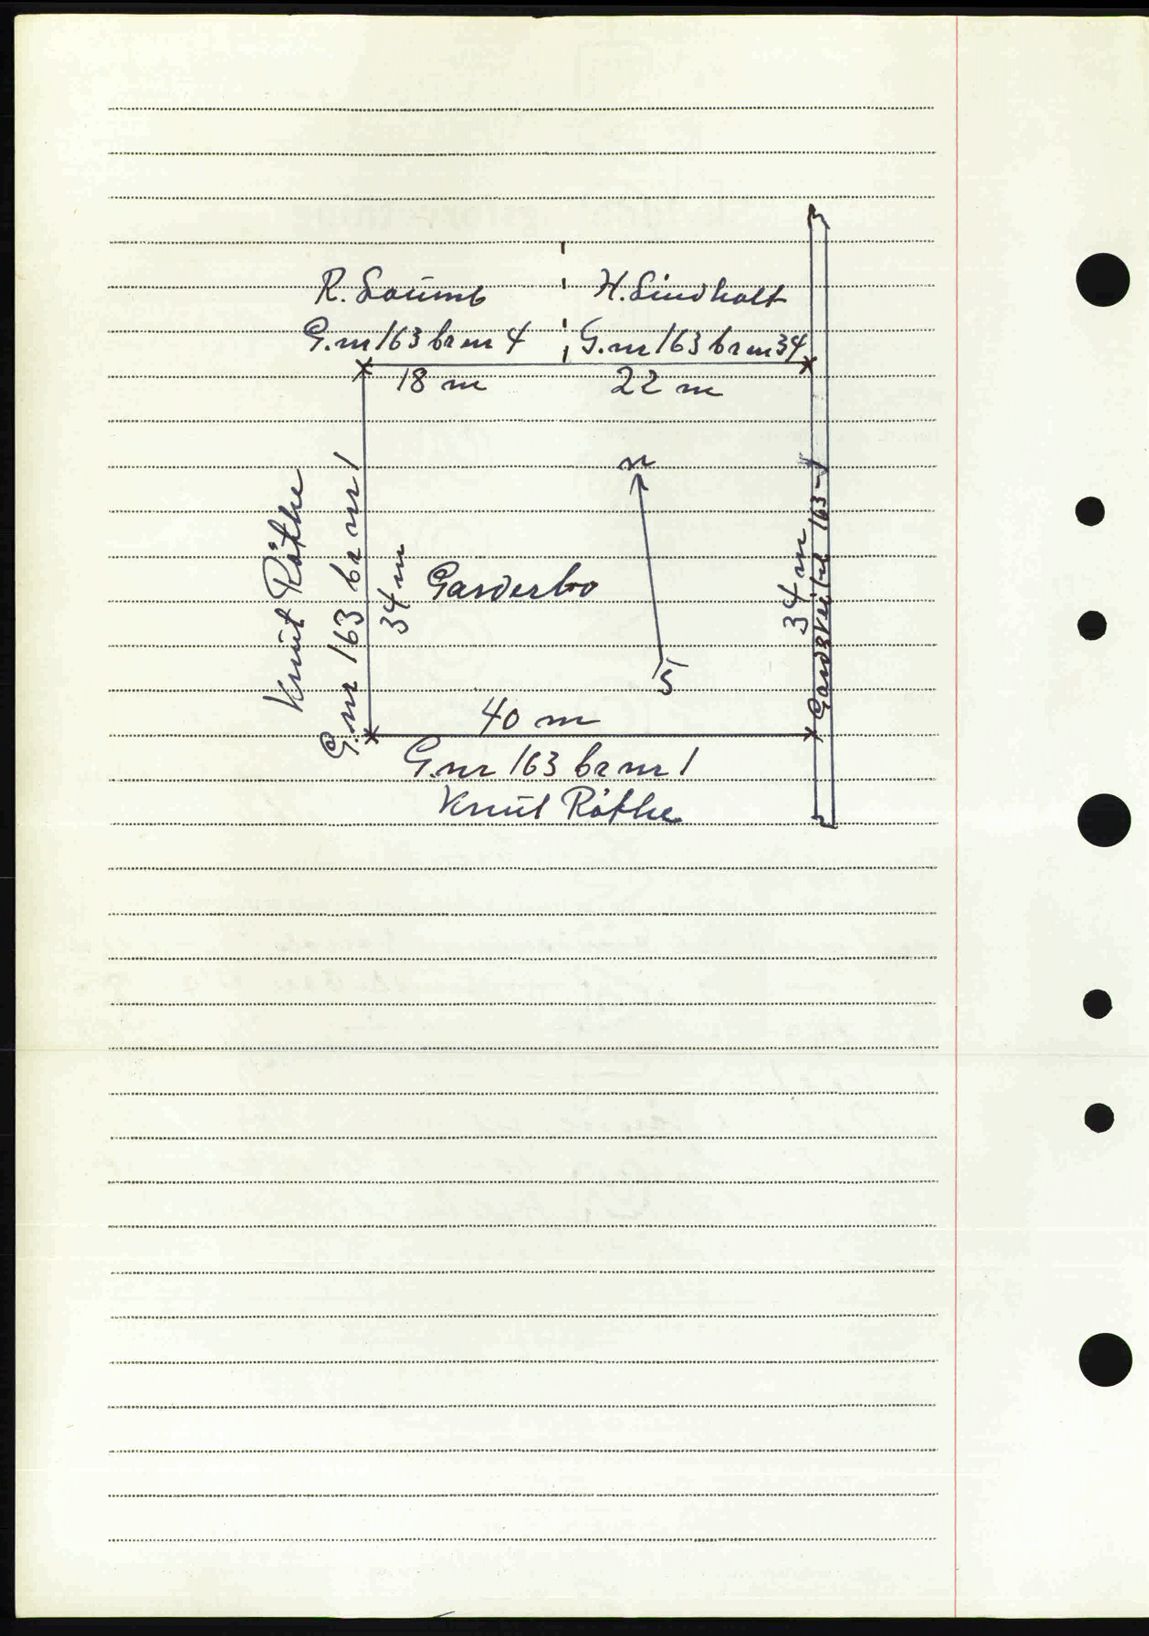 R. Laumb
G.nr 163 br nr 4
H. Lindholt
G.nr 163 br nr 34
18 m
22 m
Knut Røthe
G.nr 163 br nr 1
34 m
Garderbo
N
S
34 m
163-1
40 m
G.nr 163 br nr 1
Knut Røthe